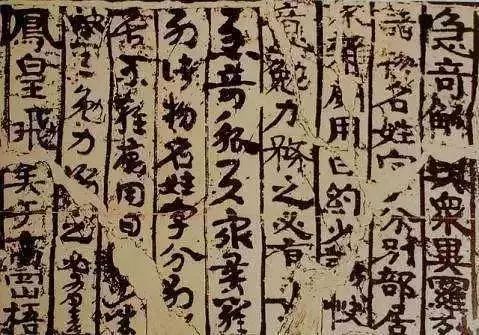 急奇觚與衆異羅
諸物名姓字分別部居
用日約少快
意勉力務之必有
急奇觚與衆異羅
列諸物名姓字分別
居不雜廁用日
意勉力務之必有喜
鳳皇飛矣于高岡梧